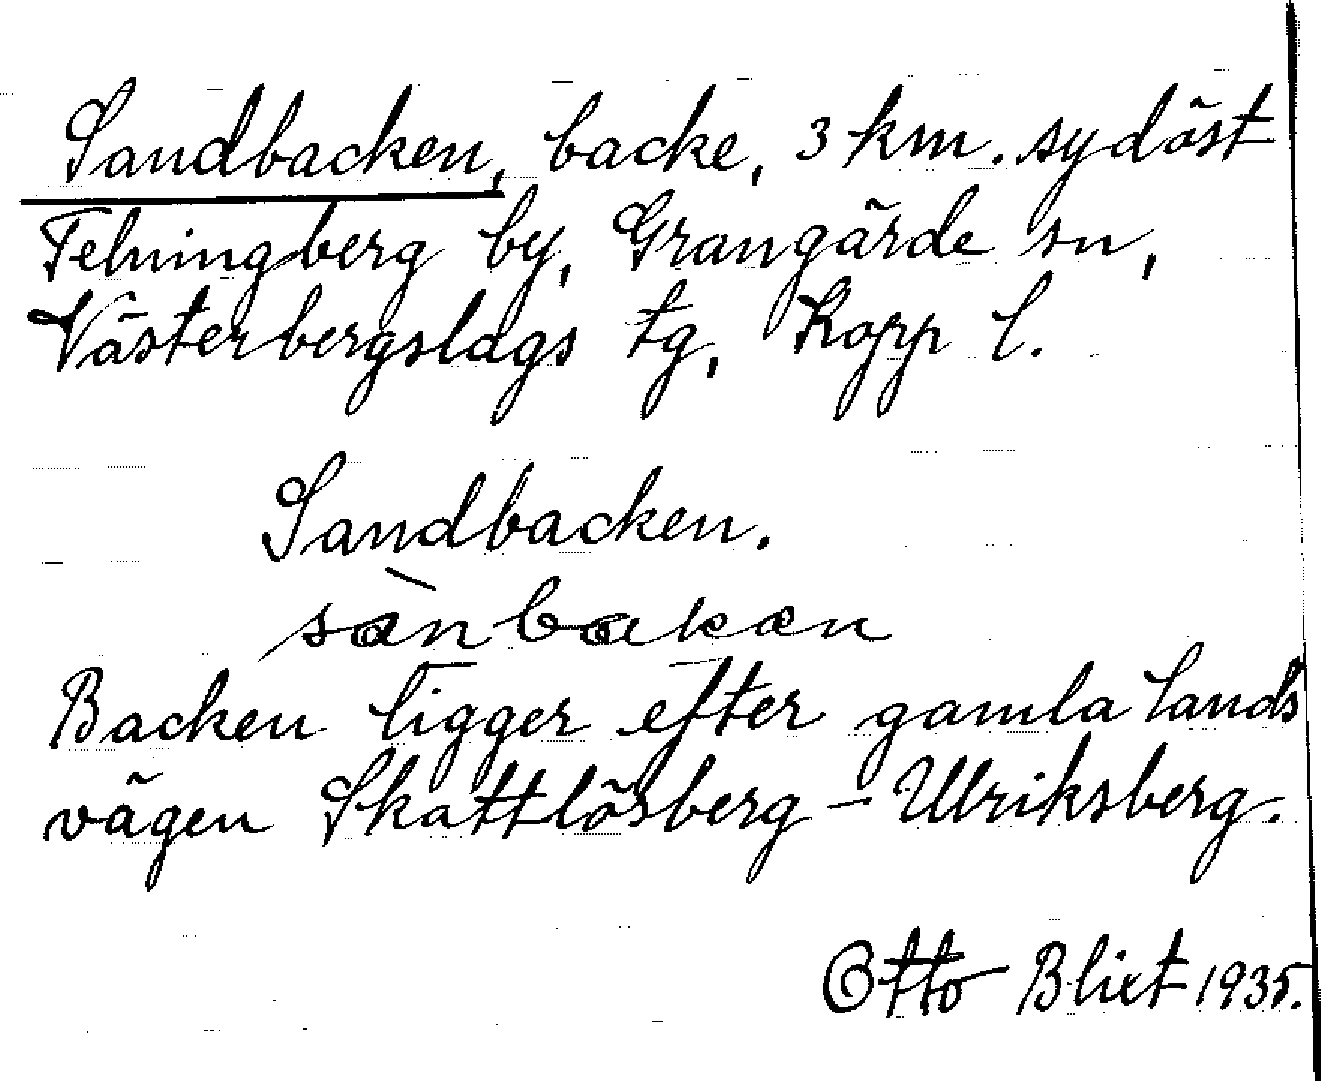 Sandbacken, backe, 3 km. sydöst
Telningberg by, Grangärde sn,
Västerbergslags tg, Kopp l.
Sandbacken.
sànbakæn
Backen ligger efter gamla lands
vägen Skattlösberg - Ulriksberg.
Otto Blixt 1935.